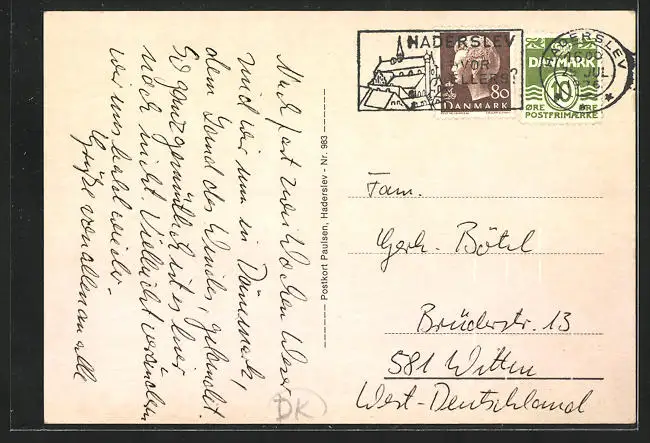 HADERSLEV
HVOR
ELLERS?
80
DANMARK
DANMARK
10
ØRE ØRE
POSTFRIMÆRKE
HADERSLEV
JUL
Nach fast zwei Wochen
sind wir nun in Dänemark,
dem Land des Windes, gelandet.
So ganz gemütlich ist es hier
noch nicht. Vielleicht
wir uns bald wieder.
Grüße von allen an alle
Postkort Paulsen, Haderslev - Nr. 983
DK
Fam.
Gerh. Bötel
Brüderstr. 13
581 Witten
West-Deutschland